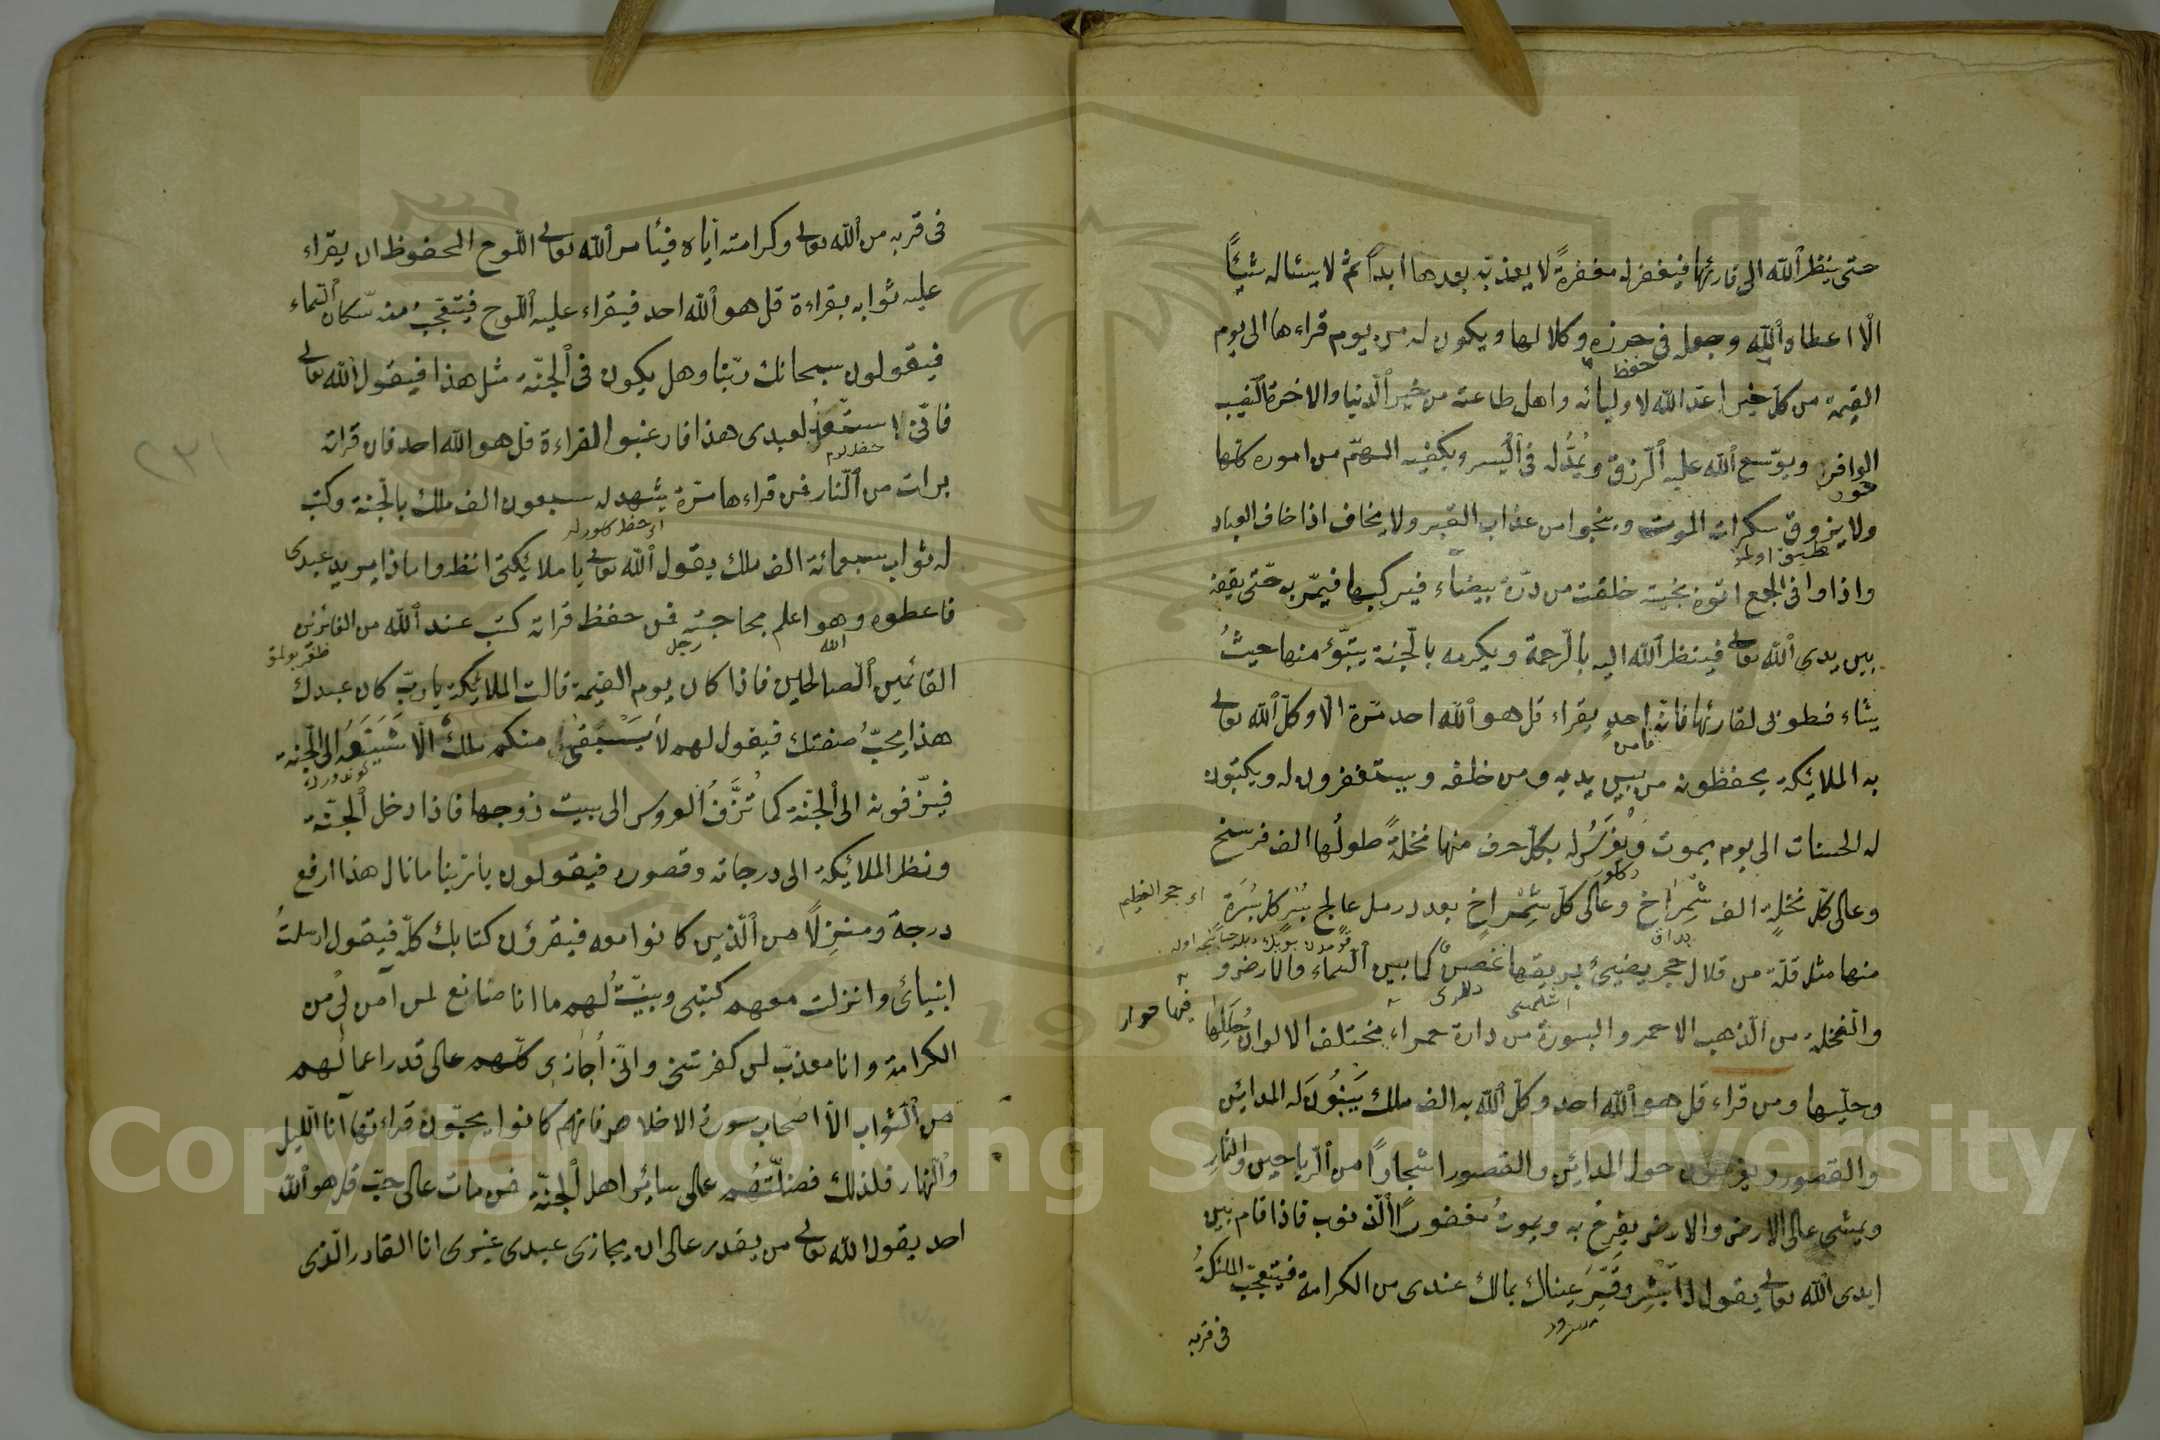 حتى ينظر الله الى قارئها فيغفر له مغفرةً لا يعذبه بعدها ابداً ثم لا يسئاله شيئاً
الا اعطاه الله وجعله فى حرزه وكلا لها ويكون له من يوم قراءها الى يوم
حفظ
القيمة من كل خير اعد الله لاوليائه واهل طاعته من خير الدنيا والاخرة النصيب
الوافر ويوسع الله عليه الرزق ويمد له فى اليسر ويكفيه المهم من اموره كلها
ولا يزوق سكرات الموت وينجوا من عذاب القبر ولا يخاف اذا خاف العباد
واذا وافى الجمع اتوه بنجيبة خلقت من درة بيضاء فيركبها فيمر به حتى يقف
بين يدى الله تعالى فينظر الله اليه بالرحمة ويكرمه بالجنة يتبوء منها حيثُ
يشاء فطوبى لقارئها فانه احد يقراء قل هو الله احد مرة الا وكل الله تعالى
به الملائيكة يحفظونه من بين يديه ومن خلفه ويستغفرون له ويكتبون
له الحسنات الى يوم يموت ويُغرَسُ له بكل حرف منها نخلةً طولُها الف فرسخ
وعالى كل نخلةٍ الف شِمْراخ وعالى كل شِمْراخٍ بعدد رمل عالج بُسْر كل بُسْرَة
اى حجر العظيم
بداق
منها مثل قلة من قلال حجر يضيئ بريقها غصن كما بين السماء والارض و
والنخلة من الذهب الاحمر والبسرة من دارة حمراء مختلف الالوان حُلَلها
فيها حوار
وحليها ومن قراء قل هو الله احد وكل الله به الف ملك يَبْنُونَ له المدائين
والقصور ويغرسون حول المدائين والقصور اشجاراً من الرياحين والثمارِ
ويمشى عالى الارض والارض يفرح به ويموتُ مغفورًا الذنوب فاذا قام بين
ايدى الله تعالى يقول له ابشِر وقَرِّ عيناك بمالك عندى من الكرامة فيتعجب الملئكةُ
السرور
فى قربه
فى قربه من الله تعالى وكرامته اياه فيئامر الله تعالى اللوح المحفوظ ان يقراء
عليه ثوابه بقراءة قل هو الله احد فيقراء عليه اللوح فيتعجبُ منه سكان السماء
فيقولون سبحانك ربنا وهل يكون فى الجنة مثل هذا فيقول الله تعالى
فانى لعبدى هذا فارغبوا القراءة قل هو الله احد فان قراته
برات من النار فمن قراءها مرة يشهد له سبعون الف ملك بالجنة وكتب
له ثواب سبعمائة الف ملك يقول الله تعالى يا ملائيكتى انظروا ماذا يريد عبدى
فاعطوه وهو اعلم بحاجته فمن حفظ قراته كتب عند الله من الفائزين
الله
رجل
ظفر بولمق
القائمين الصالحين فاذا كان يوم القيمة قالت الملائيكة يا رب كان عبدك
هذا يحبُّ صفتك فيقول لهم لا يبقى منكم ملك الا شَيَّعَهُ الى الجنة
فيزفونه الى الجنة كما تُزَفُّ العروس الى بيت زوجها فاذا دخل الجنة
ونظر الملائيكة الى درجاته وقصوره فيقولون يا ربنا ما نال هذا ارفع
درجة ومنزلاً من الذين كانوا معه فيقرؤن كتابك كله فيقول ارسلتُ
انبيائى وانزلت معهم كتبى وبينتُ لهم ما انا صانع لمن آمن لى من
الكرامة وانا معذب لمن كفر تنحى وانى أجازى كلهم عالى قدر اعمالهم
من الثواب الا اصحاب سورة الاخلاص فانهم كانوا يحبون قراءتها آناء الليل
والنهار فلذلك فضلتُهم عالى سائير اهل الجنة فمن مات عالى حب قل هو الله
احد يقول الله تعالى من يقدر عالى ان يجازى عبدى غيرى انا القادر الذى
٢٣١
Copyright © King Saud University
1957